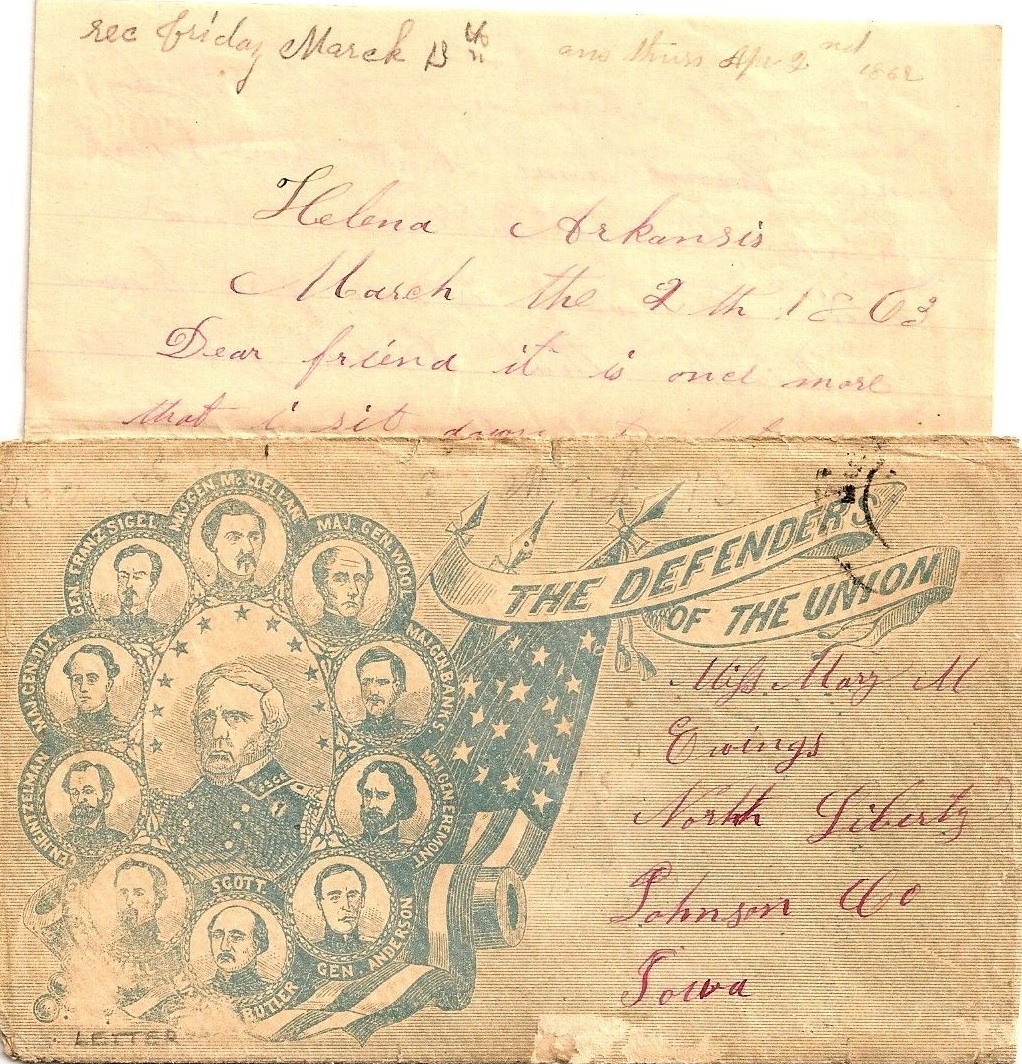 rec friday March 13th ans thurs Apr 2nd 1862
Helena Arkansis
March the 2 th 1863
Dear friend it is once more
that i sit down
THE DEFENDERS
OF THE UNION
MAJ. GEN. McCLELLAN
GEN. FRANZ SIGEL
MAJ. GEN. WOOL
MAJ. GEN. DIX
MAJ. GEN. BANKS
GEN. HEINTZELMAN
MAJ. GEN. FREMONT
SCOTT
GEN ANDERSON
BUTLER
Miss Mary M
Ewings
North Liberty
Johnson Co
Iowa
LETTER